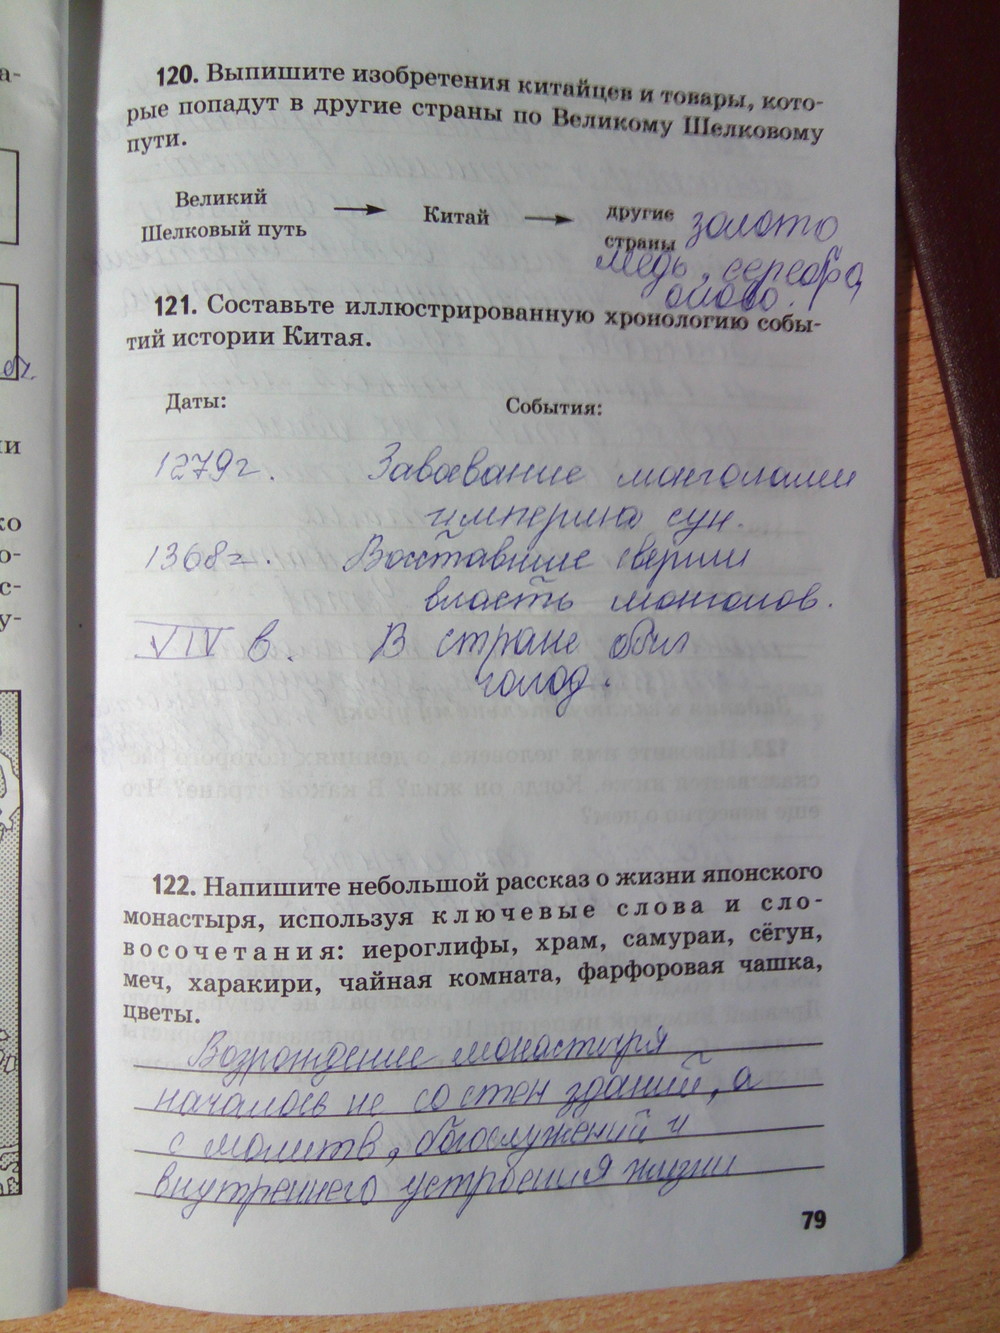 120. Выпишите изобретения китайцев и товары, кото-
рые попадут в другие страны по Великому Шелковому
пути.
Великий
Шелковый путь
Китай
другие
страны
золото
медь, серебра,
олово.
121. Составьте иллюстрированную хронологию собы-
тий истории Китая.
Даты: События:
1279г. Завоевание монголами
империю сун.
1368г. Восставшие свергли
власть монголов.
XIV в. В стране был
голод.
122. Напишите небольшой рассказ о жизни японского
монастыря, используя ключевые слова и сло-
восочетания: иероглифы, храм, самураи, сёгун,
меч, харакири, чайная комната, фарфоровая чашка,
цветы.
Возрождение монастыря
началось не со стен зданий, а
с молитв, богослужений и
внутреннего устроения жизни
79